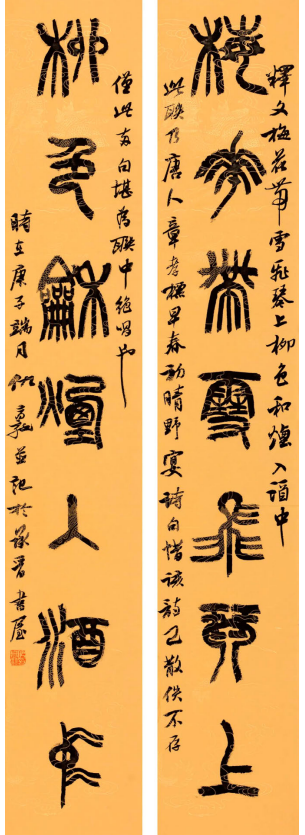 釋文梅花帶雪飛琴上柳色和煙入酒中
梅花帶雪飛琴上
此聯乃唐人章孝標早春初晴野宴詩句惜該詩已散佚不存
僅此兩句堪為聯中絕唱也
柳色龢煙入酒中
時在庚子端月並記於香書屋